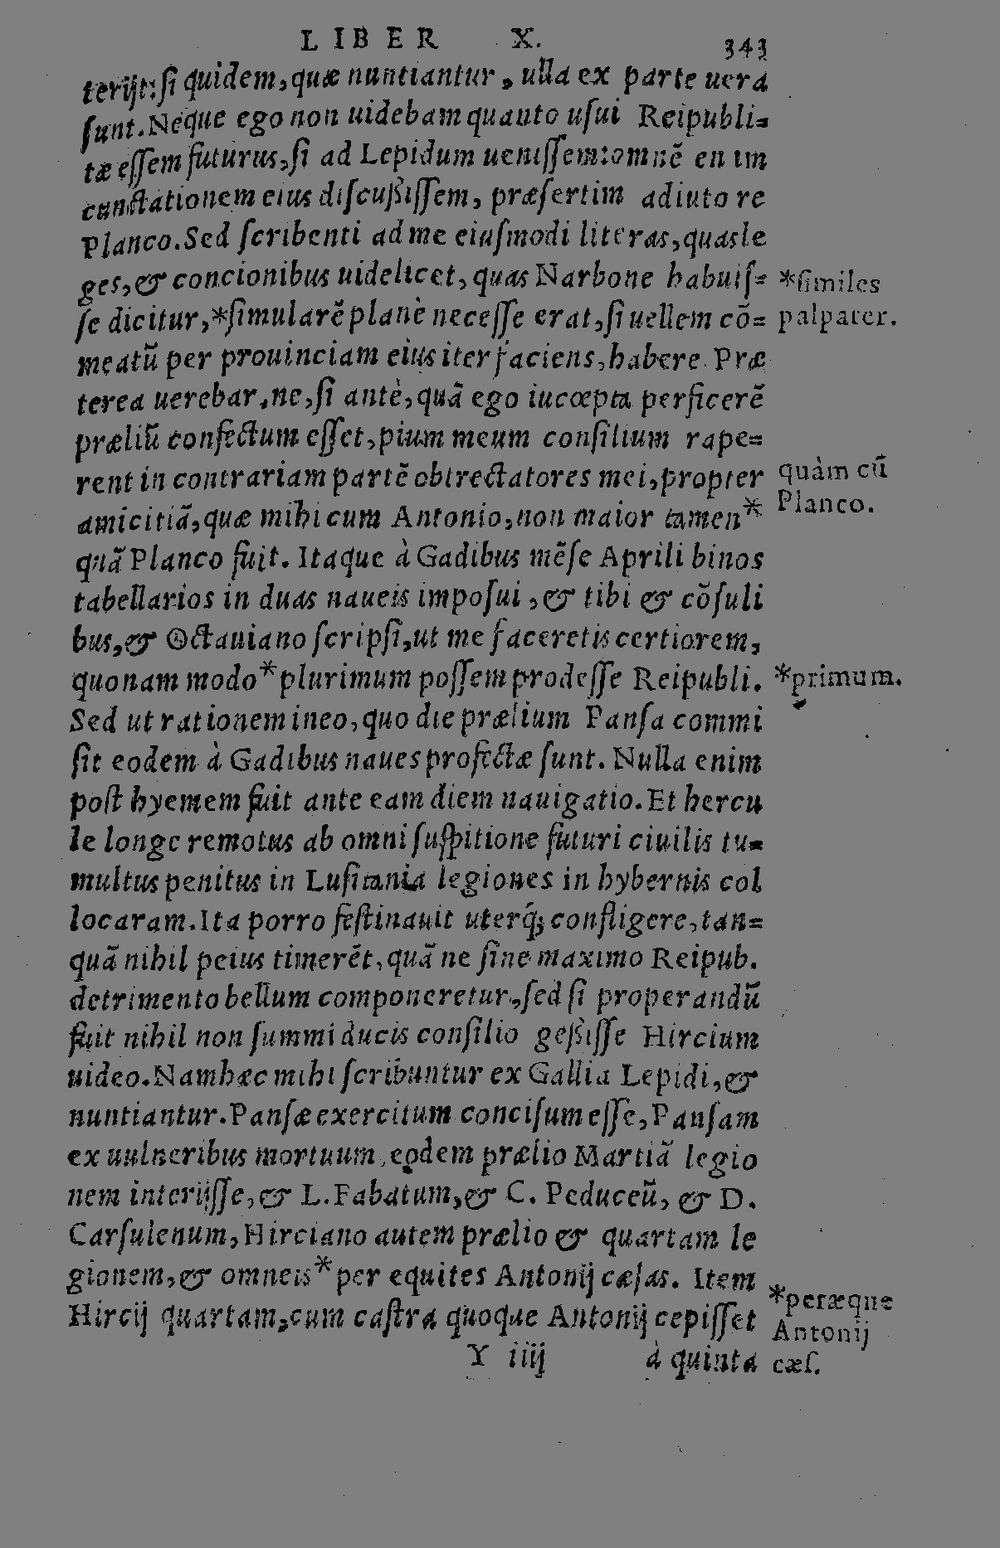 LIBER X. 343
terijt: si quidem, quæ nuntiantur, ulla ex parte uera
sunt. Neque ego non uidebam quanto usui Reipubli=
cæ essem futurus, si ad Lepidum uenissem: omnẽ en im
cunctationem eius discußissem, præsertim adiuto re
Planco. Sed scribenti ad me eiusmodi literas, quas le
ges, & concionibus uidelicet, quas Narbone habuis=
se dicitur, *simularẽ planè necesse erat, si uellem cõ=
meatũ per prouinciam eius iter faciens, habere. Præ
terea uerebar, ne, si antè, quã ego iucœpta perficerẽ
præliũ confectum esset, pium meum consilium rape=
rent in contrariam partẽ obtrectatores mei, propter
amicitiã, quæ mihi cum Antonio, non maior tamen*
quã Planco fuit. Itaque à Gadibus mẽse Aprili binos
tabellarios in duas naueis imposui, & tibi & cõsuli
bus, & Octauiano scripsi, ut me faceretis certiorem,
quonam modo *plurimum possem prodesse Reipubli.
Sed ut rationem ineo, quo die prælium Pansa commi
sit eodem à Gadibus naues profectæ sunt. Nulla enim
post hyemem fuit ante eam diem nauigatio. Et hercu
le longe remotus ab omni suspitione futuri ciuilis tu=
multus penitus in Lusitania legiones in hybernis col
locaram. Ita porro festinauit uterq́; confligere, tan=
quã nihil peius timerẽt, quã ne sine maximo Reipub.
detrimento bellum componeretur, sed si properandũ
fuit nihil non summi ducis consilio geßisse Hircium
uideo. Nam hæc mihi scribuntur ex Gallia Lepidi, &
nuntiantur. Pansæ exercitum concisum esse, Pansam
ex uulneribus mortuum, eodem prælio Martiã legio
nem interijsse, & L. Fabatum, & C. Peduceũ, & D.
Carsulenum, Hirciano autem prælio & quartam le
gionem, & omneis *per equites Antonij cæsas. Item
Hircij quartam, cum castra quoque Antonij cepisset
Y iiij à quinta
*similes
palparer.
quàm cũ
Planco.
*primum.
*peræque
Antonij
cæs.